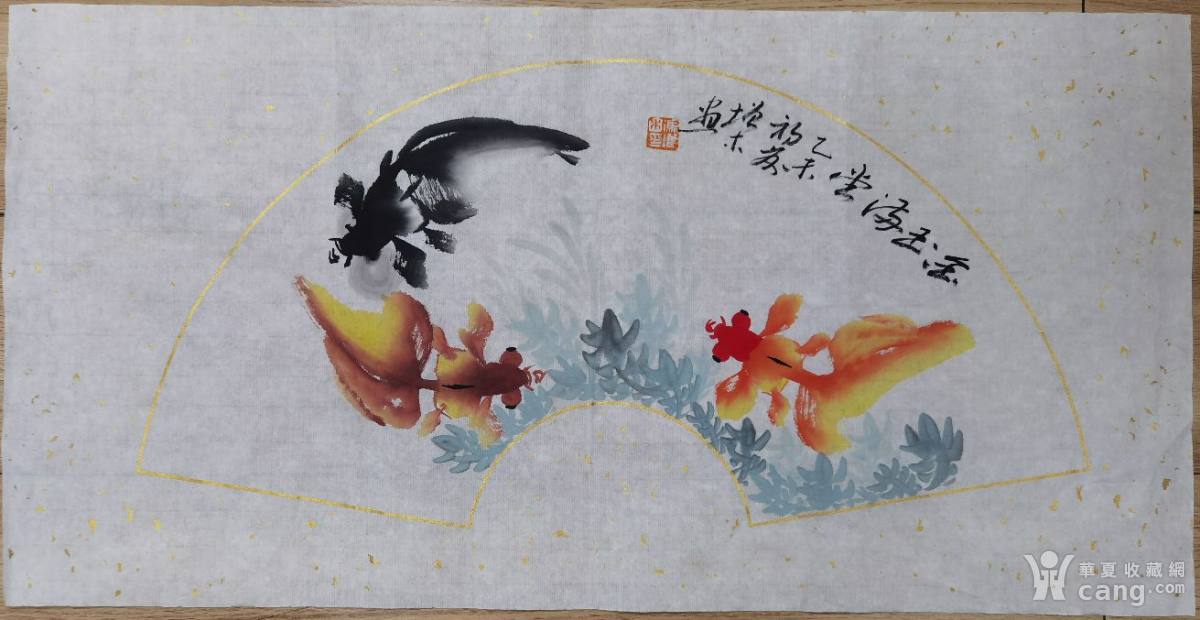 金玉满堂
乙未
初夏
增木
画
華夏收藏網
cang.com